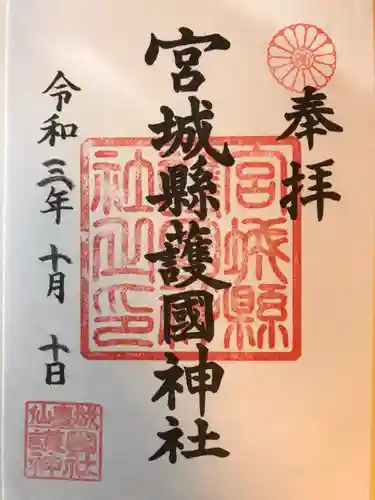 奉拝
宮城縣護國神社
令和三年 十月 十日
宮城縣
護國神
社之印